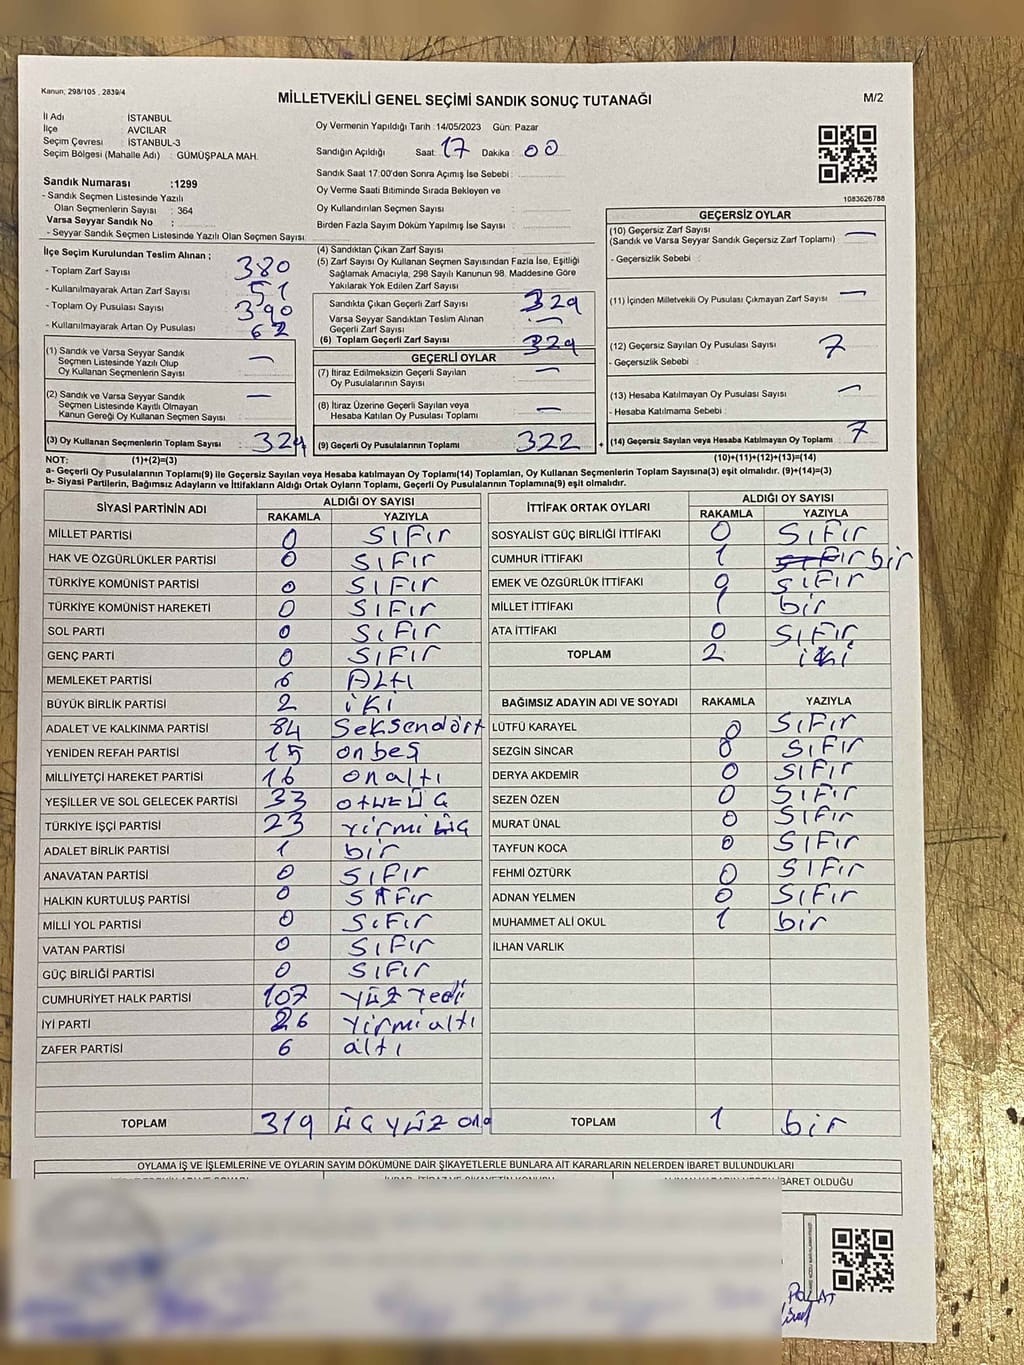 Kanun; 298/105 , 2839/4
MİLLETVEKİLİ GENEL SEÇİMİ SANDIK SONUÇ TUTANAĞI
M/2
İl Adı : İSTANBUL
İlçe : AVCILAR
Seçim Çevresi : İSTANBUL-3
Seçim Bölgesi (Mahalle Adı) : GÜMÜŞPALA MAH.
Sandık Numarası :1299
- Sandık Seçmen Listesinde Yazılı
Olan Seçmenlerin Sayısı : 364
Varsa Seyyar Sandık No :
- Seyyar Sandık Seçmen Listesinde Yazılı Olan Seçmen Sayısı:
Oy Vermenin Yapıldığı Tarih :14/05/2023 Gün: Pazar
Sandığın Açıldığı Saat: 17 Dakika : 00
Sandık Saat 17:00'den Sonra Açımış İse Sebebi :
Oy Verme Saati Bitiminde Sırada Bekleyen ve
Oy Kullandırılan Seçmen Sayısı :
Birden Fazla Sayım Döküm Yapılmış İse Sayısı :
1083626788
İlçe Seçim Kurulundan Teslim Alınan ;
- Toplam Zarf Sayısı : 380
- Kullanılmayarak Artan Zarf Sayısı : 51
- Toplam Oy Pusulası Sayısı : 390
- Kullanılmayarak Artan Oy Pusulası : 62
(1) Sandık ve Varsa Seyyar Sandık
Seçmen Listesinde Yazılı Olup
Oy Kullanan Seçmenlerin Sayısı : —
(2) Sandık ve Varsa Seyyar Sandık
Seçmen Listesinde Kayıtlı Olmayan
Kanun Gereği Oy Kullanan Seçmen Sayısı : —
(3) Oy Kullanan Seçmenlerin Toplam Sayısı : 329
(4) Sandıktan Çıkan Zarf Sayısı :
(5) Zarf Sayısı Oy Kullanan Seçmen Sayısından Fazla İse, Eşitliği
Sağlamak Amacıyla, 298 Sayılı Kanunun 98. Maddesine Göre
Yakılarak Yok Edilen Zarf Sayısı :
Sandıkta Çıkan Geçerli Zarf Sayısı : 329
Varsa Seyyar Sandıktan Teslim Alınan
Geçerli Zarf Sayısı : —
(6) Toplam Geçerli Zarf Sayısı : 329
GEÇERLİ OYLAR
(7) İtiraz Edilmeksizin Geçerli Sayılan
Oy Pusulalarının Sayısı : —
(8) İtiraz Üzerine Geçerli Sayılan veya
Hesaba Katılan Oy Pusulası Toplamı : —
(9) Geçerli Oy Pusulalarının Toplamı : 322 +
GEÇERSİZ OYLAR
(10) Geçersiz Zarf Sayısı
(Sandık ve Varsa Seyyar Sandık Geçersiz Zarf Toplamı) : —
- Geçersizlik Sebebi :
(11) İçinden Milletvekili Oy Pusulası Çıkmayan Zarf Sayısı : —
(12) Geçersiz Sayılan Oy Pusulası Sayısı : 7
- Geçersizlik Sebebi :
(13) Hesaba Katılmayan Oy Pusulası Sayısı : —
- Hesaba Katılmama Sebebi :
(14) Geçersiz Sayılan veya Hesaba Katılmayan Oy Toplamı : 7
NOT: (1)+(2)=(3) (10)+(11)+(12)+(13)=(14)
a- Geçerli Oy Pusulalarının Toplamı(9) ile Geçersiz Sayılan veya Hesaba katılmayan Oy Toplamı(14) Toplamları, Oy Kullanan Seçmenlerin Toplam Sayısına(3) eşit olmalıdır. (9)+(14)=(3)
b- Siyasi Partilerin, Bağımsız Adayların ve İttifakların Aldığı Ortak Oyların Toplamı, Geçerli Oy Pusulalarının Toplamına(9) eşit olmalıdır.
SİYASİ PARTİNİN ADI ALDIĞI OY SAYISI
RAKAMLA YAZIYLA
MİLLET PARTİSİ 0 SıFır
HAK VE ÖZGÜRLÜKLER PARTİSİ 0 SıFır
TÜRKİYE KOMÜNİST PARTİSİ 0 SıFır
TÜRKİYE KOMÜNİST HAREKETİ 0 SıFır
SOL PARTİ 0 SıFır
GENÇ PARTİ 0 SıFır
MEMLEKET PARTİSİ 6 ALtı
BÜYÜK BİRLİK PARTİSİ 2 iki
ADALET VE KALKINMA PARTİSİ 84 Seksendört
YENİDEN REFAH PARTİSİ 15 onbeş
MİLLİYETÇİ HAREKET PARTİSİ 16 onaltı
YEŞİLLER VE SOL GELECEK PARTİSİ 33 otuzüç
TÜRKİYE İŞÇİ PARTİSİ 23 yirmi üç
ADALET BİRLİK PARTİSİ 1 bir
ANAVATAN PARTİSİ 0 SıFır
HALKIN KURTULUŞ PARTİSİ 0 SıFır
MİLLİ YOL PARTİSİ 0 SıFır
VATAN PARTİSİ 0 SıFır
GÜÇ BİRLİĞİ PARTİSİ 0 SıFır
CUMHURİYET HALK PARTİSİ 107 yüz yedi
İYİ PARTİ 26 yirmi altı
ZAFER PARTİSİ 6 altı
TOPLAM 319 üç yüz
İTTİFAK ORTAK OYLARI ALDIĞI OY SAYISI
RAKAMLA YAZIYLA
SOSYALİST GÜÇ BİRLİĞİ İTTİFAKI 0 SıFır
CUMHUR İTTİFAKI 1 SıFır bir
EMEK VE ÖZGÜRLÜK İTTİFAKI 0 SıFır
MİLLET İTTİFAKI 1 bir
ATA İTTİFAKI 0 SıFır
TOPLAM 2 iki
BAĞIMSIZ ADAYIN ADI VE SOYADI RAKAMLA YAZIYLA
LÜTFÜ KARAYEL 0 SıFır
SEZGİN SİNCAR 0 SıFır
DERYA AKDEMİR 0 SıFır
SEZEN ÖZEN 0 SıFır
MURAT ÜNAL 0 SıFır
TAYFUN KOCA 0 SıFır
FEHMİ ÖZTÜRK 0 SıFır
ADNAN YELMEN 0 SıFır
MUHAMMET ALİ OKUL 1 bir
İLHAN VARLIK
TOPLAM 1 bir
OYLAMA İŞ VE İŞLEMLERİNE VE OYLARIN SAYIM DÖKÜMÜNE DAİR ŞİKAYETLERLE BUNLARA AİT KARARLARIN NELERDEN İBARET BULUNDUKLARI
İBARET OLDUĞU
POLAT